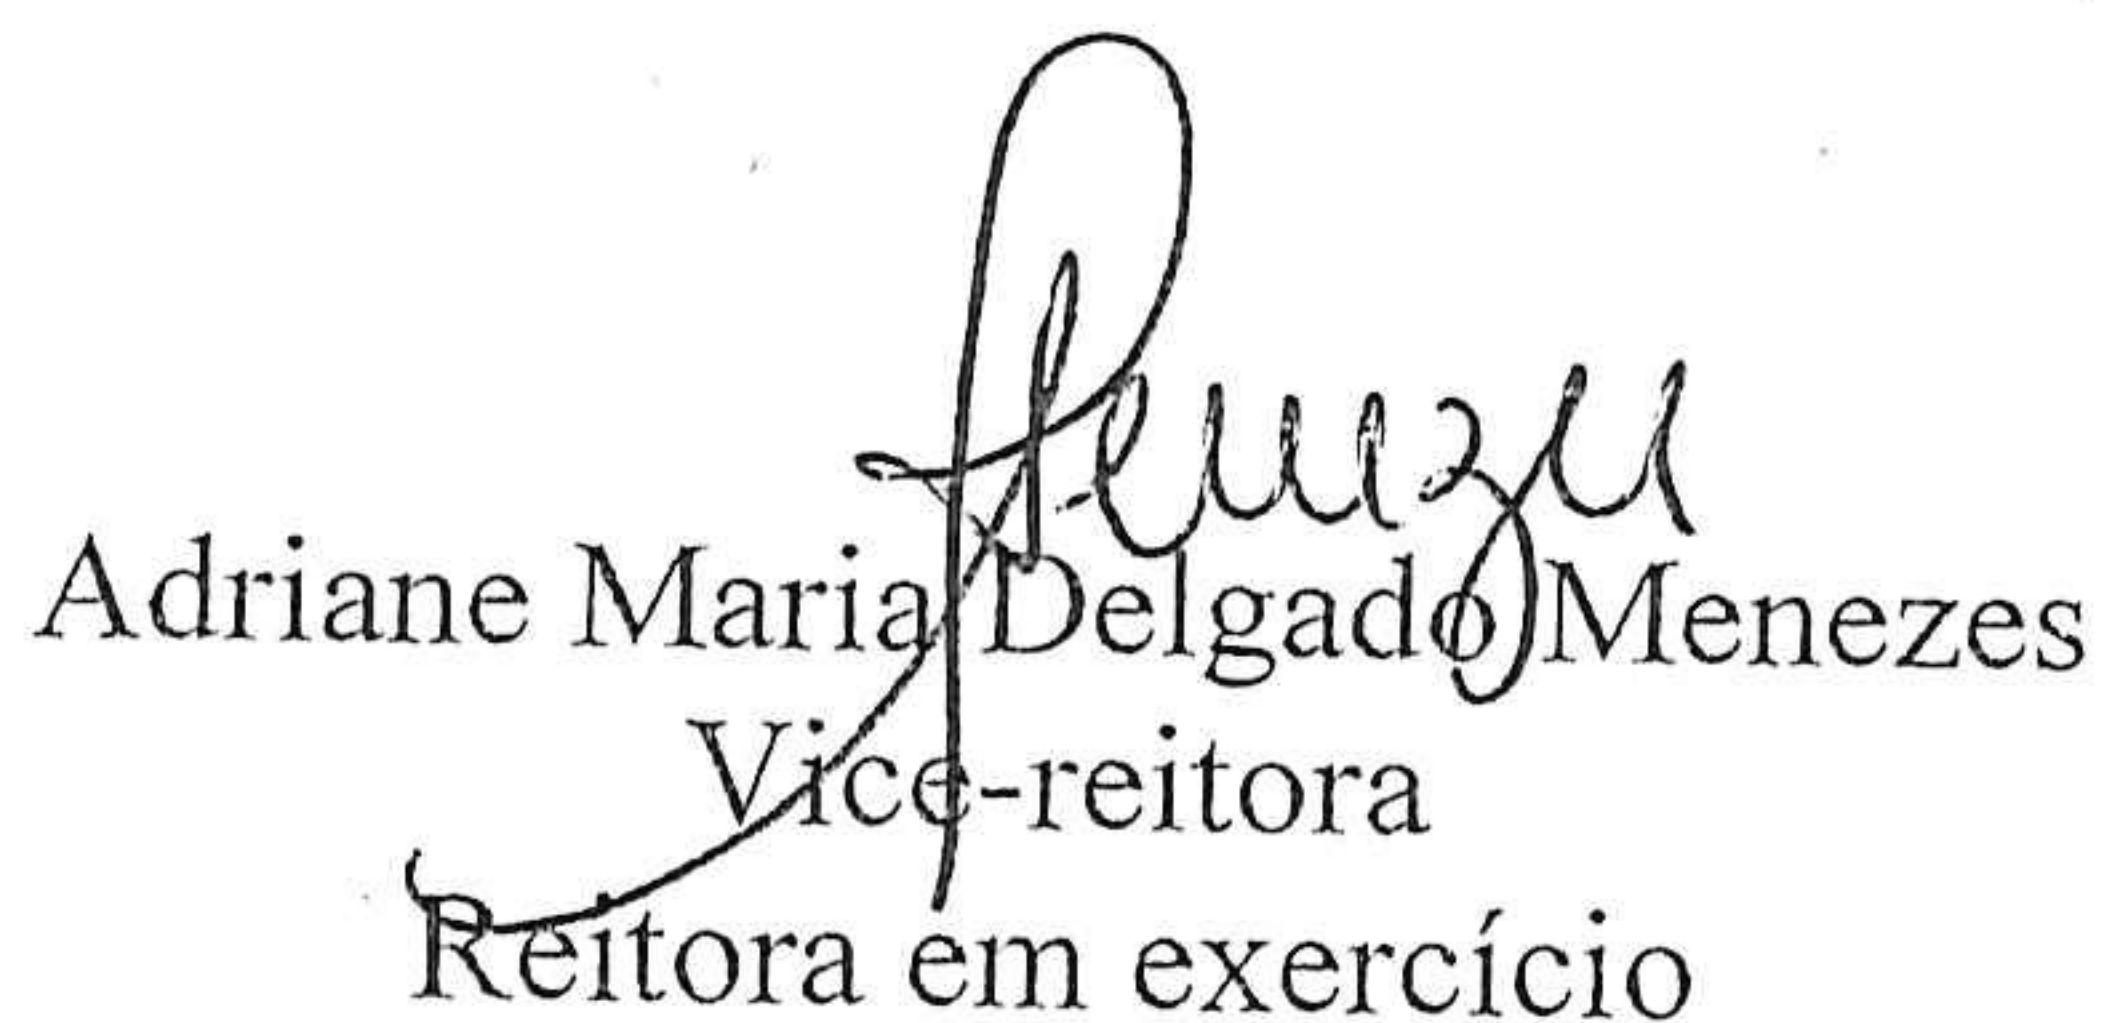 Adriane Maria Delgado Menezes
Vice-reitora
Reitora em exercício